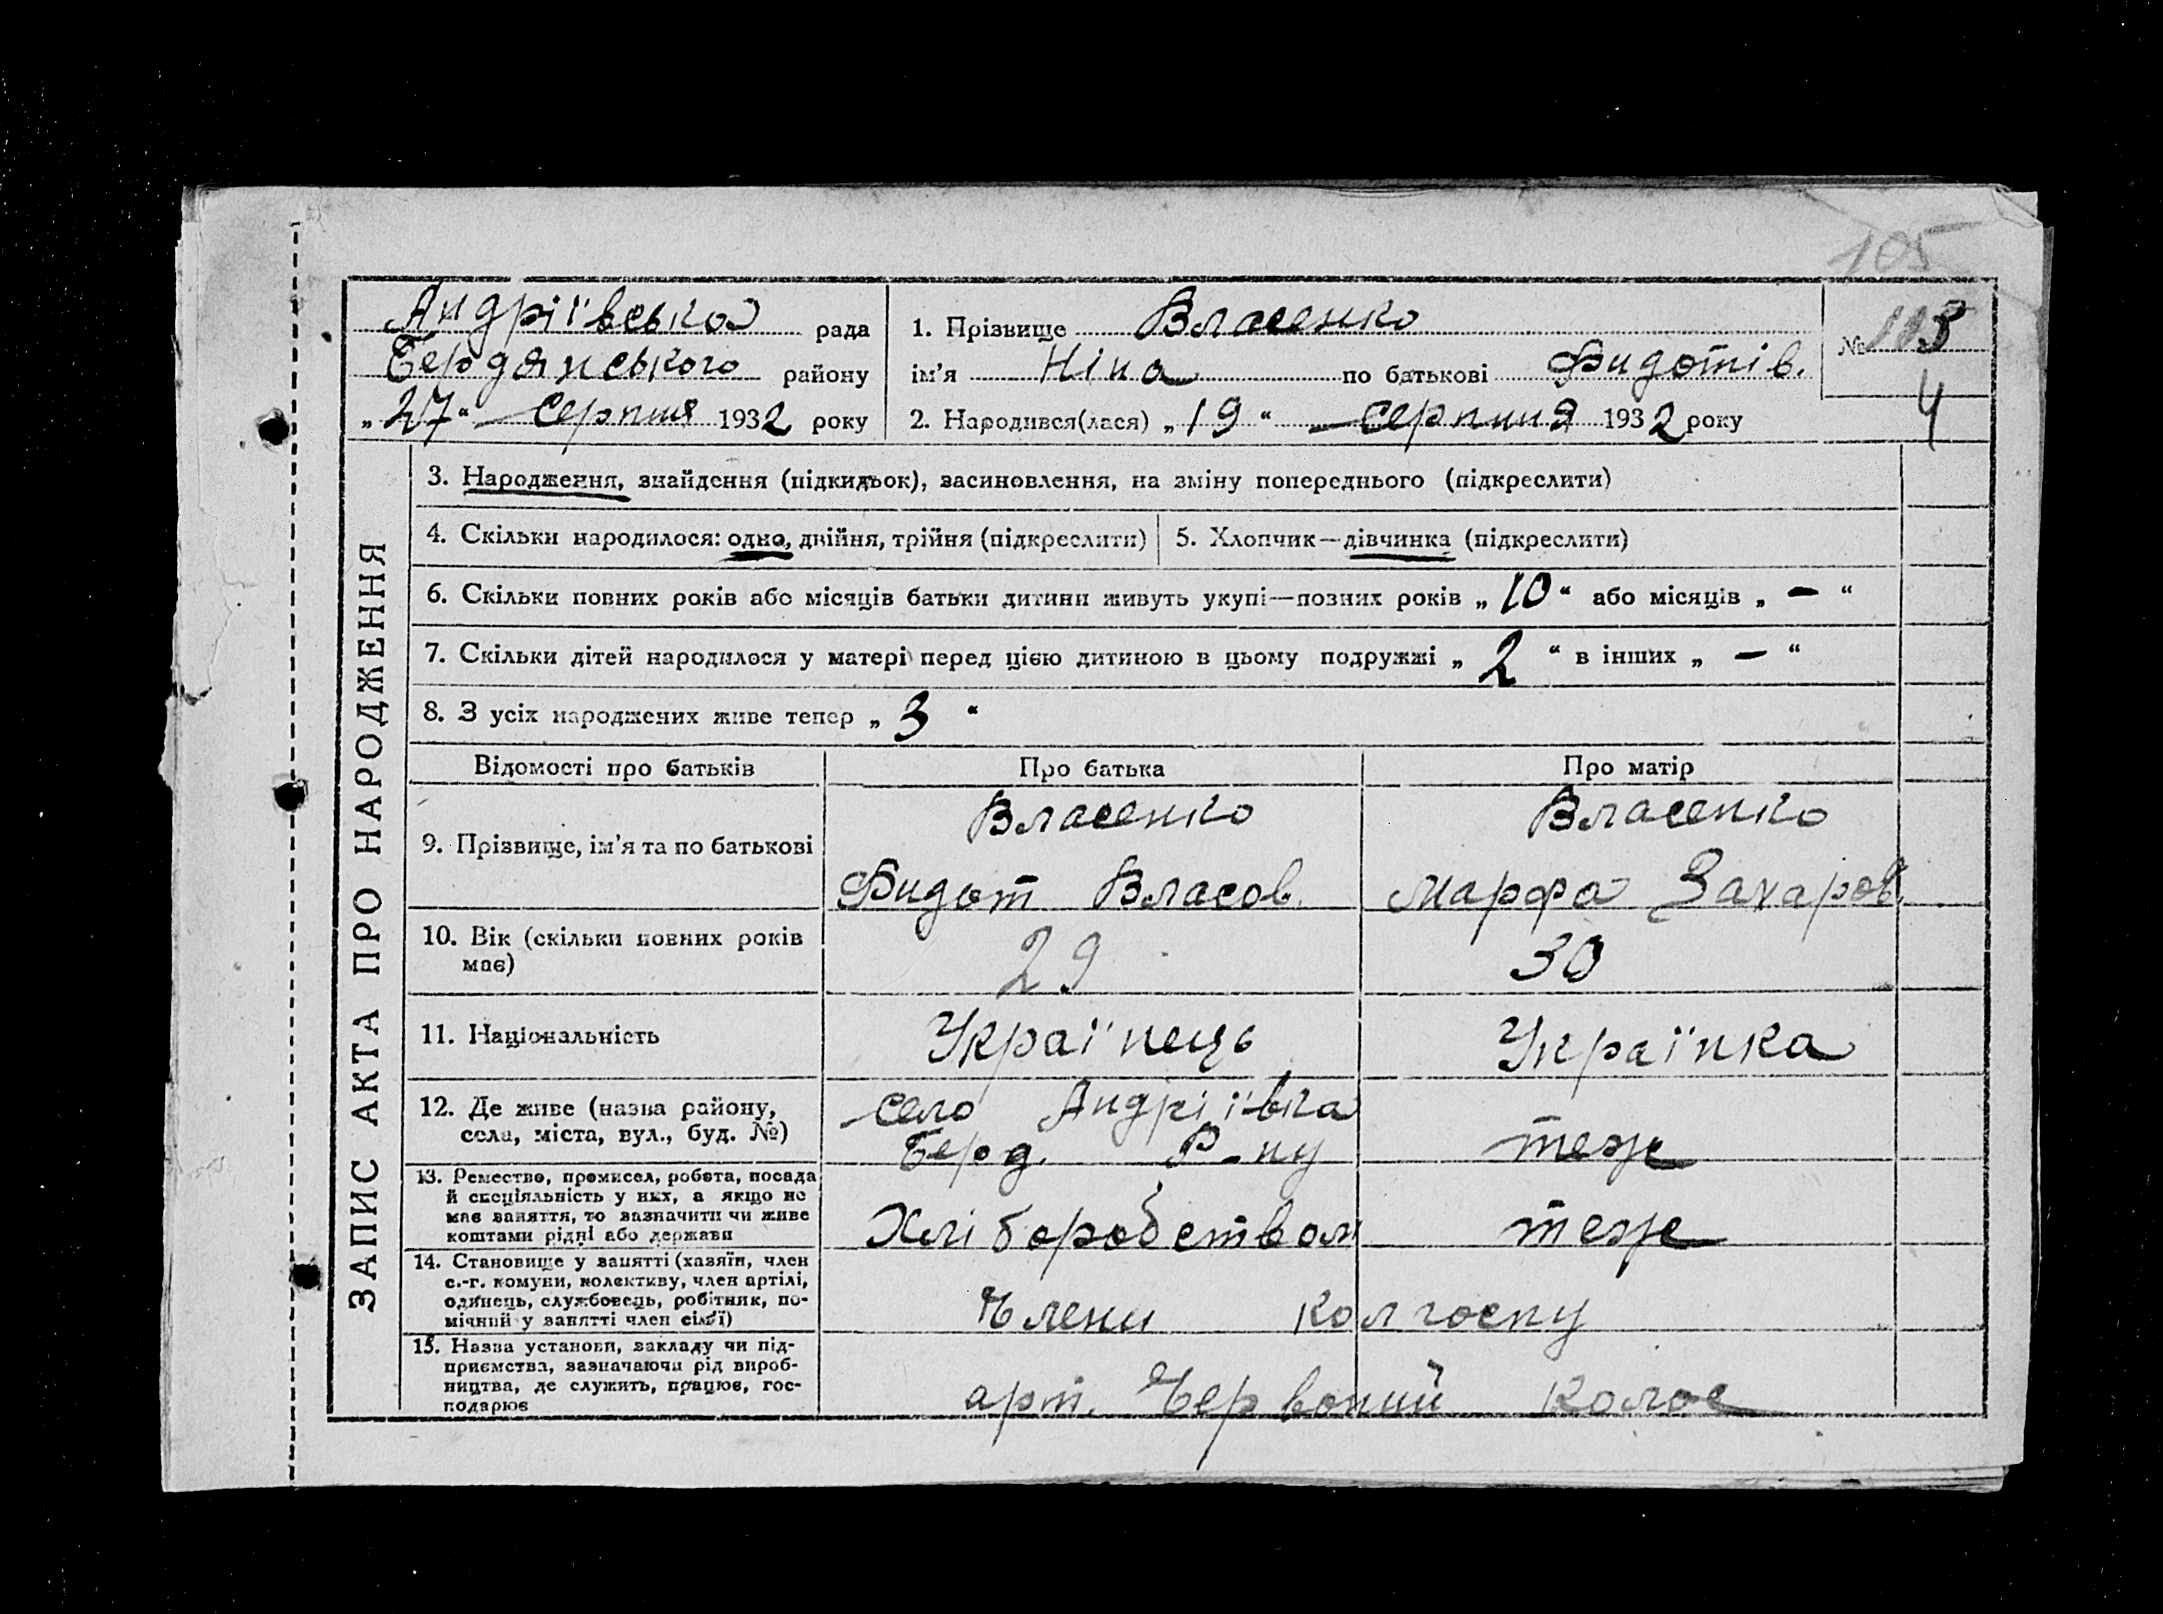 105
Андріївська рада
Бердянського району
„27“ Серпня 1932 року
1. Прізвище Власенко
ім'я Ніна по батькові Фидотів.
2. Народився(лася) „19“ Серпння 1932 року
№ 113
4
ЗАПИС АКТА ПРО НАРОДЖЕННЯ
3. Народження, знайдення (підкидьок), засиновлення, на зміну попереднього (підкреслити)
4. Скільки народилося: одно, двійня, трійня (підкреслити)
5. Хлопчик—дівчинка (підкреслити)
6. Скільки повних років або місяців батьки дитини живуть укупі—повних років „10“ або місяців „–“
7. Скільки дітей народилося у матері перед цією дитиною в цьому подружжі „2“ в інших „–“
8. З усіх народжених живе тепер „3“
Відомості про батьків Про батька Про матір
9. Прізвище, ім'я та по батькові
Власенко
Фидот Власов.
Власенко
Марфа Захаров.
10. Вік (скільки повних років
має)
29
30
11. Національність
Україпець
Українка
12. Де живе (назва району,
села, міста, вул., буд. №)
село Андріївка
Берд. Р-ну
теж
13. Ремество, промисел, робота, посада
й спеціяльність у них, а якщо не
має заняття, то зазначити чи живе
коштами рідні або держави
Хліборобством
теж
14. Становище у занятті (хазяїн, член
с.-г. комуни, колективу, член артілі,
одинець, службовець, робітник, по-
мічний у занятті член сім'ї)
Члени колгоспу
15. Назва установи, закладу чи під-
приємства, зазначаючи рід вироб-
ництва, де служить, працює, гос-
подарює
арт. Червоний Колос